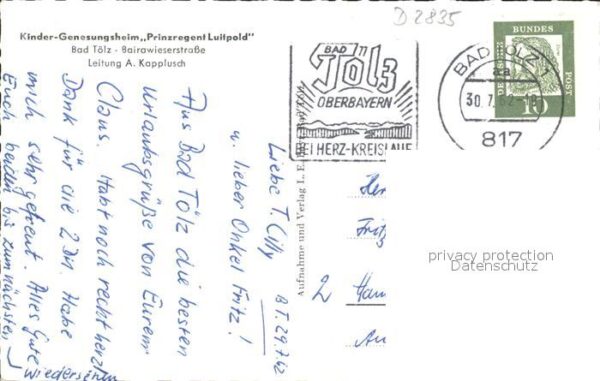 D 2835
Kinder-Genesungsheim „Prinzregent Luitpold"
Bad Tölz - Bairawieserstraße
Leitung A. Kapplusch
BAD
Tölz
OBERBAYERN
BEI HERZ-KREISLAUF
BAD TÖLZ 1
30.7.62-18
817
DEUTSCHE
BUNDES
POST
10
B.T. 29.7.62
Liebe T. Cilly
u. lieber Onkel Fritz!
Aus Bad Tölz die besten
Urlaubsgrüße von Eurem
Claus. Habt noch recht herzl.
Dank für die 2 DM. Habe
mich sehr gefreut. Alles Gute
Euch beiden bis zum nächsten
Wiedersehen
Aufnahme und Verlag L. E.
Her
Fritz
2 Ham
An
privacy protection
Datenschutz